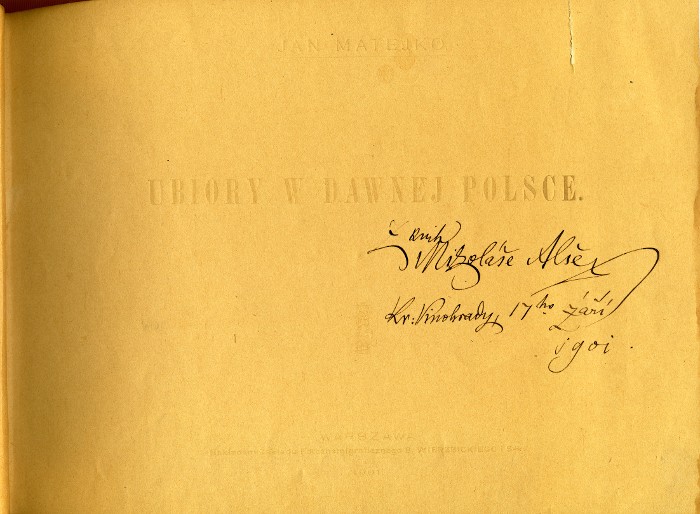 JAN MATEJKO
UBIORY W DAWNEJ POLSCE.
Z knih
Mikoláše Alše
Kr. Vinohrady, 17ho září
1901.
WARSZAWA
1901